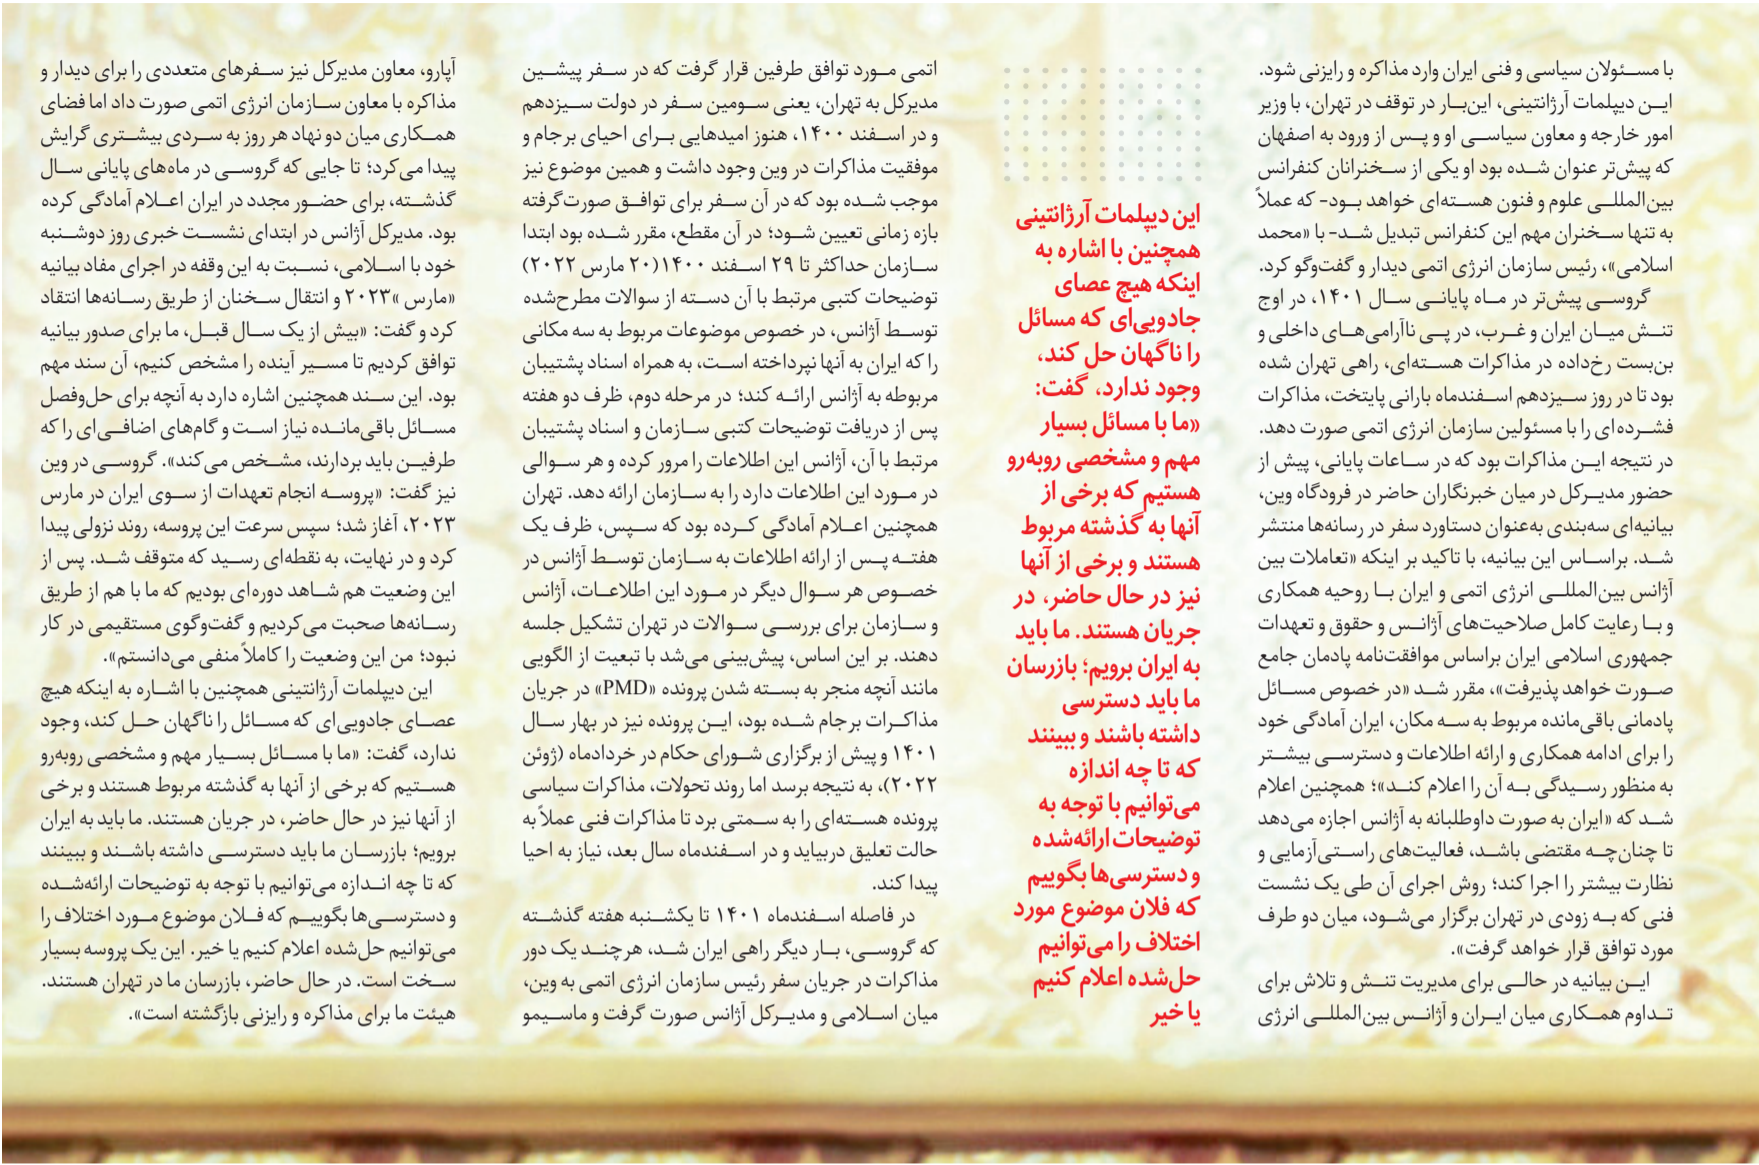 با مسئولان سیاسی و فنی ایران وارد مذاکره و رایزنی شود.
این دیپلمات آرژانتینی، این‌بار در توقف در تهران، با وزیر
امور خارجه و معاون سیاسی او و پس از ورود به اصفهان
که پیش‌تر عنوان شده بود او یکی از سخنرانان کنفرانس
بین‌المللی علوم و فنون هسته‌ای خواهد بود- که عملاً
به تنها سخنران مهم این کنفرانس تبدیل شد- با «محمد
اسلامی»، رئیس سازمان انرژی اتمی دیدار و گفت‌وگو کرد.
گروسی پیش‌تر در ماه پایانی سال ۱۴۰۱، در اوج
تنش میان ایران و غرب، در پی ناآرامی‌های داخلی و
بن‌بست رخ‌داده در مذاکرات هسته‌ای، راهی تهران شده
بود تا در روز سیزدهم اسفندماه بارانی پایتخت، مذاکرات
فشرده‌ای را با مسئولین سازمان انرژی اتمی صورت دهد.
در نتیجه این مذاکرات بود که در ساعات پایانی، پیش از
حضور مدیرکل در میان خبرنگاران حاضر در فرودگاه وین،
بیانیه‌ای سه‌بندی به‌عنوان دستاورد سفر در رسانه‌ها منتشر
شد. براساس این بیانیه، با تاکید بر اینکه «تعاملات بین
آژانس بین‌المللی انرژی اتمی و ایران با روحیه همکاری
و با رعایت کامل صلاحیت‌های آژانس و حقوق و تعهدات
جمهوری اسلامی ایران براساس موافقت‌نامه پادمان جامع
صورت خواهد پذیرفت»، مقرر شد «در خصوص مسائل
پادمانی باقی‌مانده مربوط به سه مکان، ایران آمادگی خود
را برای ادامه همکاری و ارائه اطلاعات و دسترسی بیشتر
به منظور رسیدگی به آن را اعلام کند»؛ همچنین اعلام
شد که «ایران به صورت داوطلبانه به آژانس اجازه می‌دهد
تا چنان‌چه مقتضی باشد، فعالیت‌های راستی‌آزمایی و
نظارت بیشتر را اجرا کند؛ روش اجرای آن طی یک نشست
فنی که به زودی در تهران برگزار می‌شود، میان دو طرف
مورد توافق قرار خواهد گرفت».
این بیانیه در حالی برای مدیریت تنش و تلاش برای
تداوم همکاری میان ایران و آژانس بین‌المللی انرژی
این دیپلمات آرژانتینی
همچنین با اشاره به
اینکه هیچ عصای
جادویی‌ای که مسائل
را ناگهان حل کند،
وجود ندارد، گفت:
«ما با مسائل بسیار
مهم و مشخصی روبه‌رو
هستیم که برخی از
آنها به گذشته مربوط
هستند و برخی از آنها
نیز در حال حاضر، در
جریان هستند. ما باید
به ایران برویم؛ بازرسان
ما باید دسترسی
داشته باشند و ببینند
که تا چه اندازه
می‌توانیم با توجه به
توضیحات ارائه‌شده
و دسترسی‌ها بگوییم
که فلان موضوع مورد
اختلاف را می‌توانیم
حل‌شده اعلام کنیم
یا خیر
اتمی مورد توافق طرفین قرار گرفت که در سفر پیشین
مدیرکل به تهران، یعنی سومین سفر در دولت سیزدهم
و در اسفند ۱۴۰۰، هنوز امیدهایی برای احیای برجام و
موفقیت مذاکرات در وین وجود داشت و همین موضوع نیز
موجب شده بود که در آن سفر برای توافق صورت‌گرفته
بازه زمانی تعیین شود؛ در آن مقطع، مقرر شده بود ابتدا
سازمان حداکثر تا ۲۹ اسفند ۱۴۰۰(۲۰ مارس ۲۰۲۲)
توضیحات کتبی مرتبط با آن دسته از سوالات مطرح‌شده
توسط آژانس، در خصوص موضوعات مربوط به سه مکانی
را که ایران به آنها نپرداخته است، به همراه اسناد پشتیبان
مربوطه به آژانس ارائه کند؛ در مرحله دوم، ظرف دو هفته
پس از دریافت توضیحات کتبی سازمان و اسناد پشتیبان
مرتبط با آن، آژانس این اطلاعات را مرور کرده و هر سوالی
در مورد این اطلاعات دارد را به سازمان ارائه دهد. تهران
همچنین اعلام آمادگی کرده بود که سپس، ظرف یک
هفته پس از ارائه اطلاعات به سازمان توسط آژانس در
خصوص هر سوال دیگر در مورد این اطلاعات، آژانس
و سازمان برای بررسی سوالات در تهران تشکیل جلسه
دهند. بر این اساس، پیش‌بینی می‌شد با تبعیت از الگویی
مانند آنچه منجر به بسته شدن پرونده «PMD» در جریان
مذاکرات برجام شده بود، این پرونده نیز در بهار سال
۱۴۰۱ و پیش از برگزاری شورای حکام در خردادماه (ژوئن
۲۰۲۲)، به نتیجه برسد اما روند تحولات، مذاکرات سیاسی
پرونده هسته‌ای را به سمتی برد تا مذاکرات فنی عملاً به
حالت تعلیق دربیاید و در اسفندماه سال بعد، نیاز به احیا
پیدا کند.
در فاصله اسفندماه ۱۴۰۱ تا یکشنبه هفته گذشته
که گروسی، بار دیگر راهی ایران شد، هرچند یک دور
مذاکرات در جریان سفر رئیس سازمان انرژی اتمی به وین،
میان اسلامی و مدیرکل آژانس صورت گرفت و ماسیمو
آپارو، معاون مدیرکل نیز سفرهای متعددی را برای دیدار و
مذاکره با معاون سازمان انرژی اتمی صورت داد اما فضای
همکاری میان دو نهاد هر روز به سردی بیشتری گرایش
پیدا می‌کرد؛ تا جایی که گروسی در ماه‌های پایانی سال
گذشته، برای حضور مجدد در ایران اعلام آمادگی کرده
بود. مدیرکل آژانس در ابتدای نشست خبری روز دوشنبه
خود با اسلامی، نسبت به این وقفه در اجرای مفاد بیانیه
«مارس »۲۰۲۳ و انتقال سخنان از طریق رسانه‌ها انتقاد
کرد و گفت: «بیش از یک سال قبل، ما برای صدور بیانیه
توافق کردیم تا مسیر آینده را مشخص کنیم، آن سند مهم
بود. این سند همچنین اشاره دارد به آنچه برای حل‌وفصل
مسائل باقی‌مانده نیاز است و گام‌های اضافی‌ای را که
طرفین باید بردارند، مشخص می‌کند». گروسی در وین
نیز گفت: «پروسه انجام تعهدات از سوی ایران در مارس
۲۰۲۳، آغاز شد؛ سپس سرعت این پروسه، روند نزولی پیدا
کرد و در نهایت، به نقطه‌ای رسید که متوقف شد. پس از
این وضعیت هم شاهد دوره‌ای بودیم که ما با هم از طریق
رسانه‌ها صحبت می‌کردیم و گفت‌وگوی مستقیمی در کار
نبود؛ من این وضعیت را کاملاً منفی می‌دانستم».
این دیپلمات آرژانتینی همچنین با اشاره به اینکه هیچ
عصای جادویی‌ای که مسائل را ناگهان حل کند، وجود
ندارد، گفت: «ما با مسائل بسیار مهم و مشخصی روبه‌رو
هستیم که برخی از آنها به گذشته مربوط هستند و برخی
از آنها نیز در حال حاضر، در جریان هستند. ما باید به ایران
برویم؛ بازرسان ما باید دسترسی داشته باشند و ببینند
که تا چه اندازه می‌توانیم با توجه به توضیحات ارائه‌شده
و دسترسی‌ها بگوییم که فلان موضوع مورد اختلاف را
می‌توانیم حل‌شده اعلام کنیم یا خیر. این یک پروسه بسیار
سخت است. در حال حاضر، بازرسان ما در تهران هستند.
هیئت ما برای مذاکره و رایزنی بازگشته است».